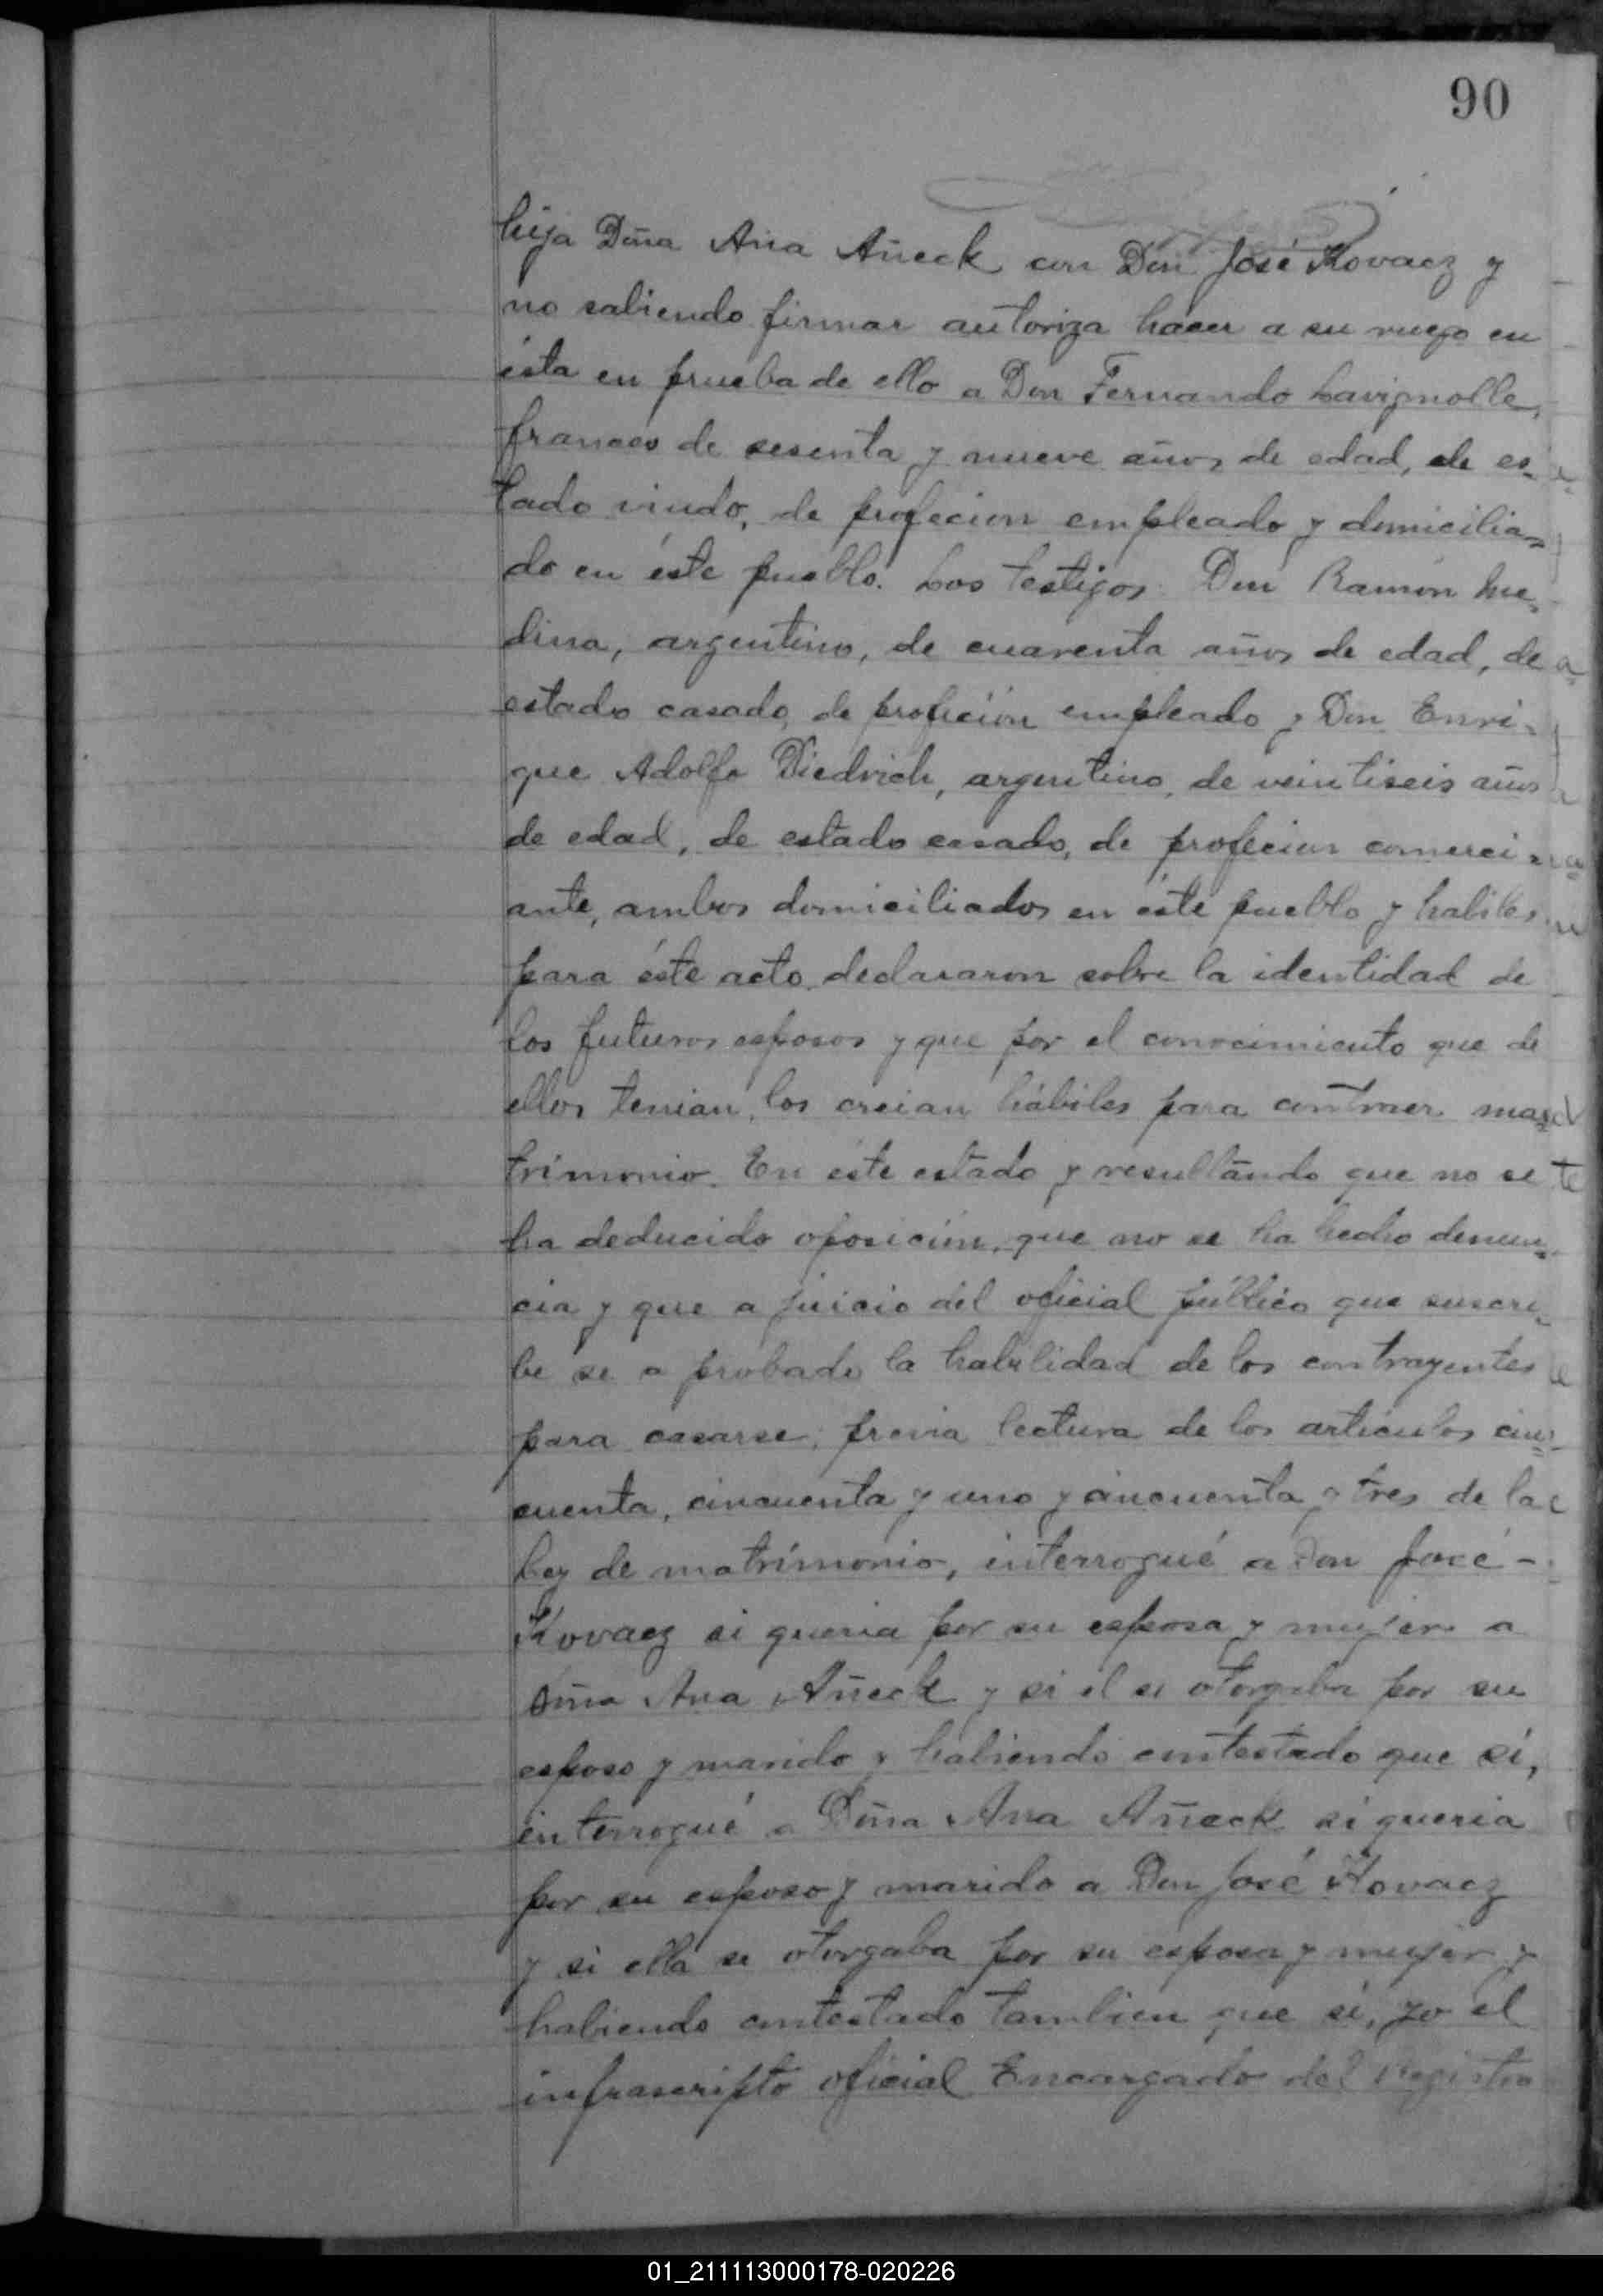 90
hija Doña Ana Añeck con Don José Kovacz y
no sabiendo firmar autoriza hacer a su ruego en
ésta en prueba de ello a Don Fernando Lavignolle,
frances de sesenta y nueve años de edad, de es-
tado viudo, de profecion empleado y domicilia-
do en éste pueblo. Los testigos Don Ramón Me-
dina, argentino, de cuarenta años de edad, de
estado casado, de profeción empleado y Don Enri-
que Adolfo Diedrich, argentino, de veintiseis años
de edad, de estado casado, de profecion comerci-
ante, ambos domiciliados en éste pueblo y habiles
para éste acto, declararon sobre la identidad de
los futuros esposos y que por el conocimiento que de
ellos tenian, los creian hábiles para contraer ma-
trimonio. En éste estado y resultando que no se
ha deducido oposición, que no se ha hecho denun-
cia y que a juicio del oficial público que suscri-
be se a probado la habilidad de los contrayentes
para casarse, previa lectura de los artículos cin-
cuenta, cincuenta y uno y cincuenta y tres de la
ley de matrimonio, interrogué a Don José -
Kovacz si queria por su esposa y mujer a
Doña Ana Añeck y si el se otorgaba por su
esposo y marido y habiendo contestado que sí,
interrogué a Doña Ana Añeck si queria
por su esposo y marido a Don José Kovacz
y si ella se otorgaba por su esposa y mujer y
habiendo contestado tambien que sí, yo el
infrascripto oficial Encargado del Registro
01_211113000178-020226